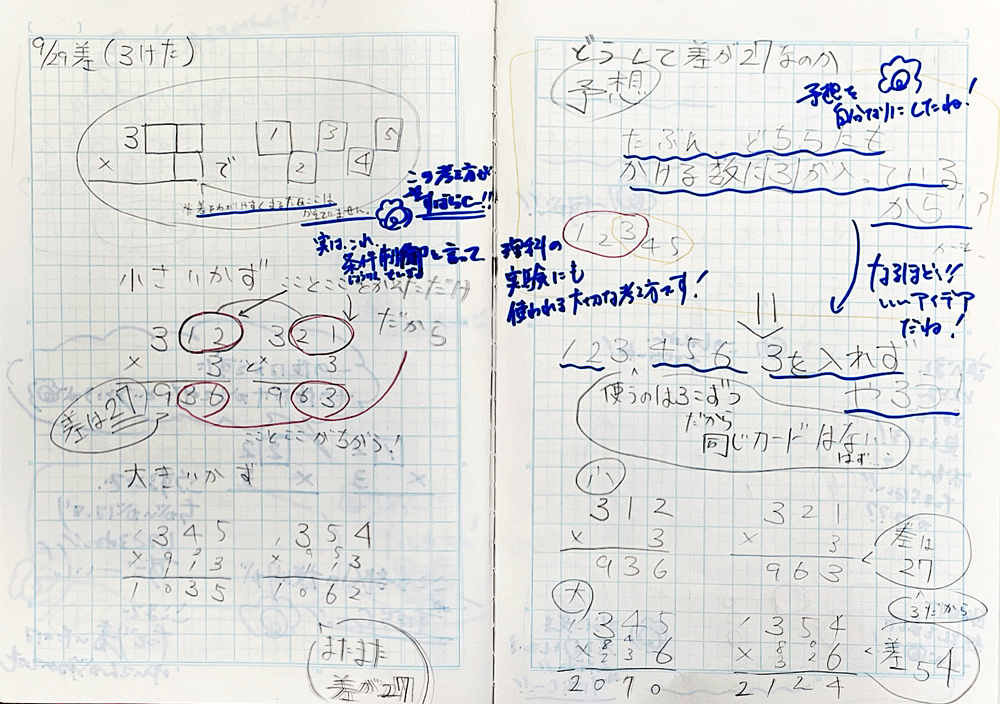 9/29 差(3けた)
3□□
× □ で
1 3 5
2 4
※差をわかりやすくするためここは
かえていません。
この考え方が
すばらしい!!
実は、これ
条件制御と言って
理科の
実験にも
使われる大切な考え方です!
小さいかず
こことここをかえただけ
だから
312 321
× 3 × 3
936 963
差は27
こことここがちがう!
大きいかず
345 354
× 3 × 3
1035 1062
またまた
差が27
どうして差が27なのか
予想
予想を
自分なりにしたね!
たぶん、どちらにも
かける数に3が入っている
から!?
1 2 3 4 5
なるほど!!
いいアイデア
だね!
123 456 3を入れず
やろう
使うのは3こずつ
だから
同じカードはない
はず…
小
312 321
× 3 × 3
936 963
差は
27
3だから
大
345 354
× 6 × 6
2070 2124
差
54